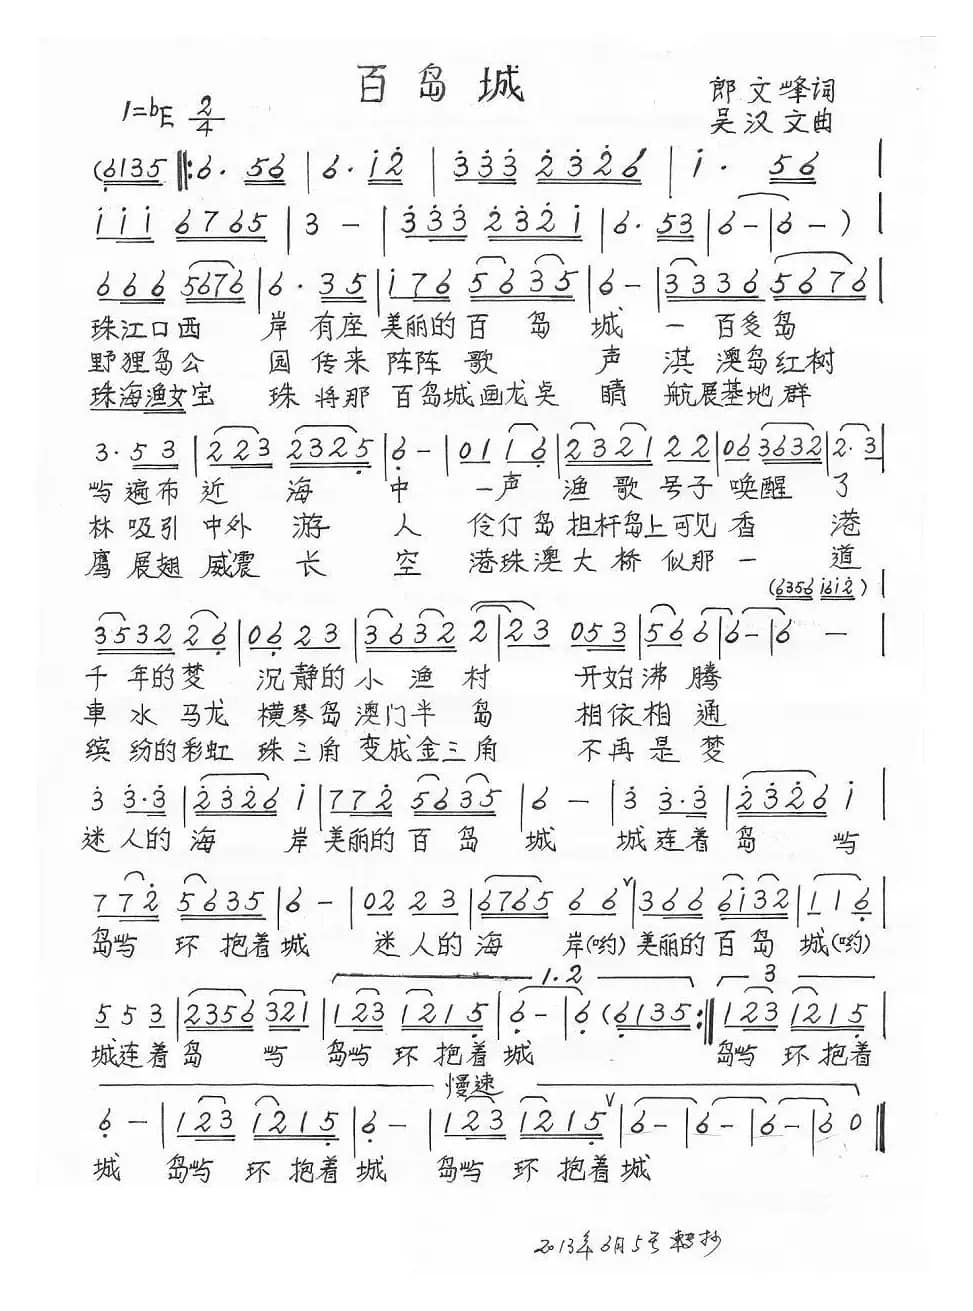 百岛城
1=bE 2/4
郎文峰词
吴汉文曲
(6135 ‖: 6· 56 | 6· i2 | 333 2326 | i· 56 |
i i i 6765 | 3 - | 333 232i | 6· 53 | 6 - | 6 - )
666 5676 | 6· 35 | i76 5635 | 6 - | 3336 5676 |
珠江口西 岸有座美丽的百岛城一百多岛
野狸岛公 园传来阵阵歌声淇澳岛红树
珠海渔女宝 珠将那百岛城画龙点睛航展基地群
3· 53 | 223 2325 | 6 - | 01 16 | 2321 22 | 06 3632 | 2· 3
屿遍布近海中一声渔歌号子唤醒了
林吸引中外游人伶仃岛担杆岛上可见香港
鹰展翅威震长空港珠澳大桥似那一道
(6356 i6i2)
3532 26 | 06 23 | 3632 2 | 23 053 | 56 6 | 6 - 6 -
千年的梦 沉静的小渔村 开始沸腾
車水马龙 横琴岛澳门半岛 相依相通
缤纷的彩虹 珠三角变成金三角 不再是梦
3 3·3 | 2326 i | 772 5635 | 6 - | 3 3·3 | 2326 i |
迷人的海岸美丽的百岛城 城连着岛屿
772 5635 | 6 - | 02 23 | 6765 66 ∨| 366 6i32 | 1 16 |
岛屿环抱着城 迷人的海岸(哟)美丽的百岛城(哟)
1.2 3
553 | 2356 321 | 123 1215 | 6 - | 6 (6135 :‖ 123 1215 |
城连着岛屿 岛屿环抱着城 岛屿环抱着
慢速
6 - | 123 1215 | 6 - | 123 1215 ∨| 6 - | 6 - | 6 - | 6 0 ‖
城 岛屿环抱着城 岛屿环抱着城
2013年6月5号转抄